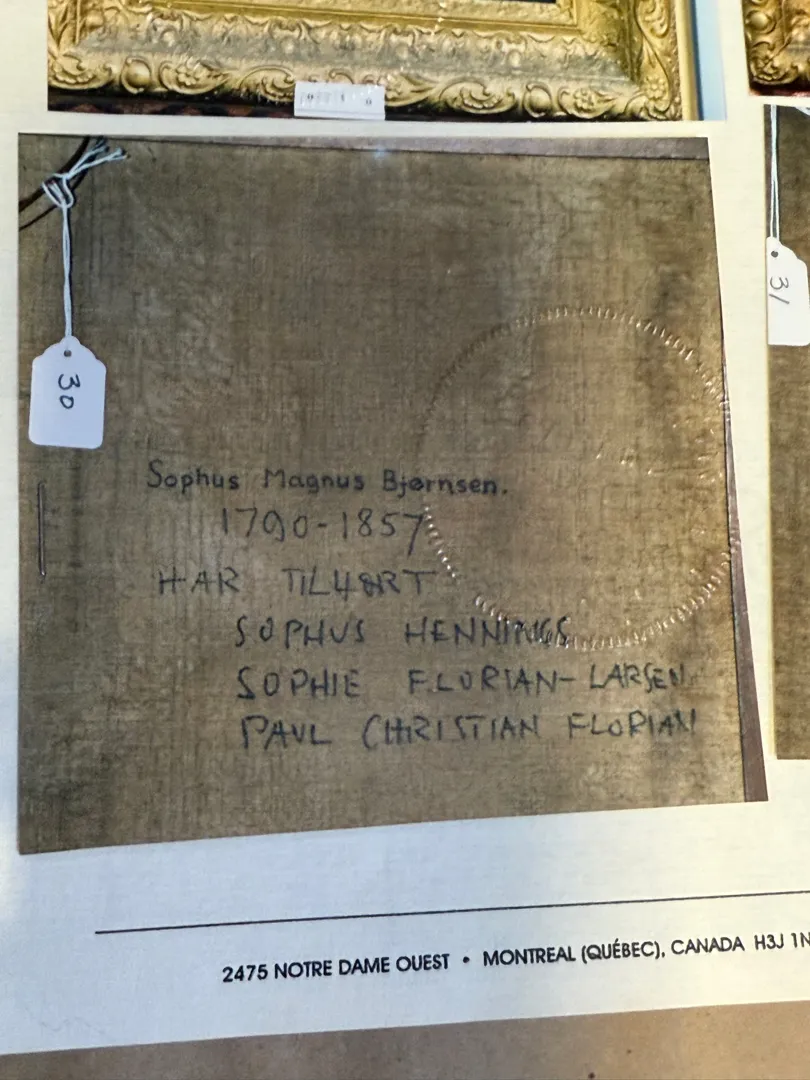 30
31
Sophus Magnus Bjørnsen.
1790-1857
HAR TILHØRT
SOPHUS HENNINGS
SOPHIE FLORIAN-LARSEN
PAUL CHRISTIAN FLORIAN
2475 NOTRE DAME OUEST • MONTREAL (QUÉBEC), CANADA H3J 1N